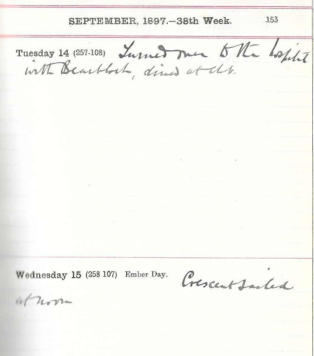 SEPTEMBER, 1897.—38th Week. 153
Tuesday 14 (257-108) Turned over to the hospital
with, dined at club.
Wednesday 15 (258 107) Ember Day. Crescent sailed
at noon